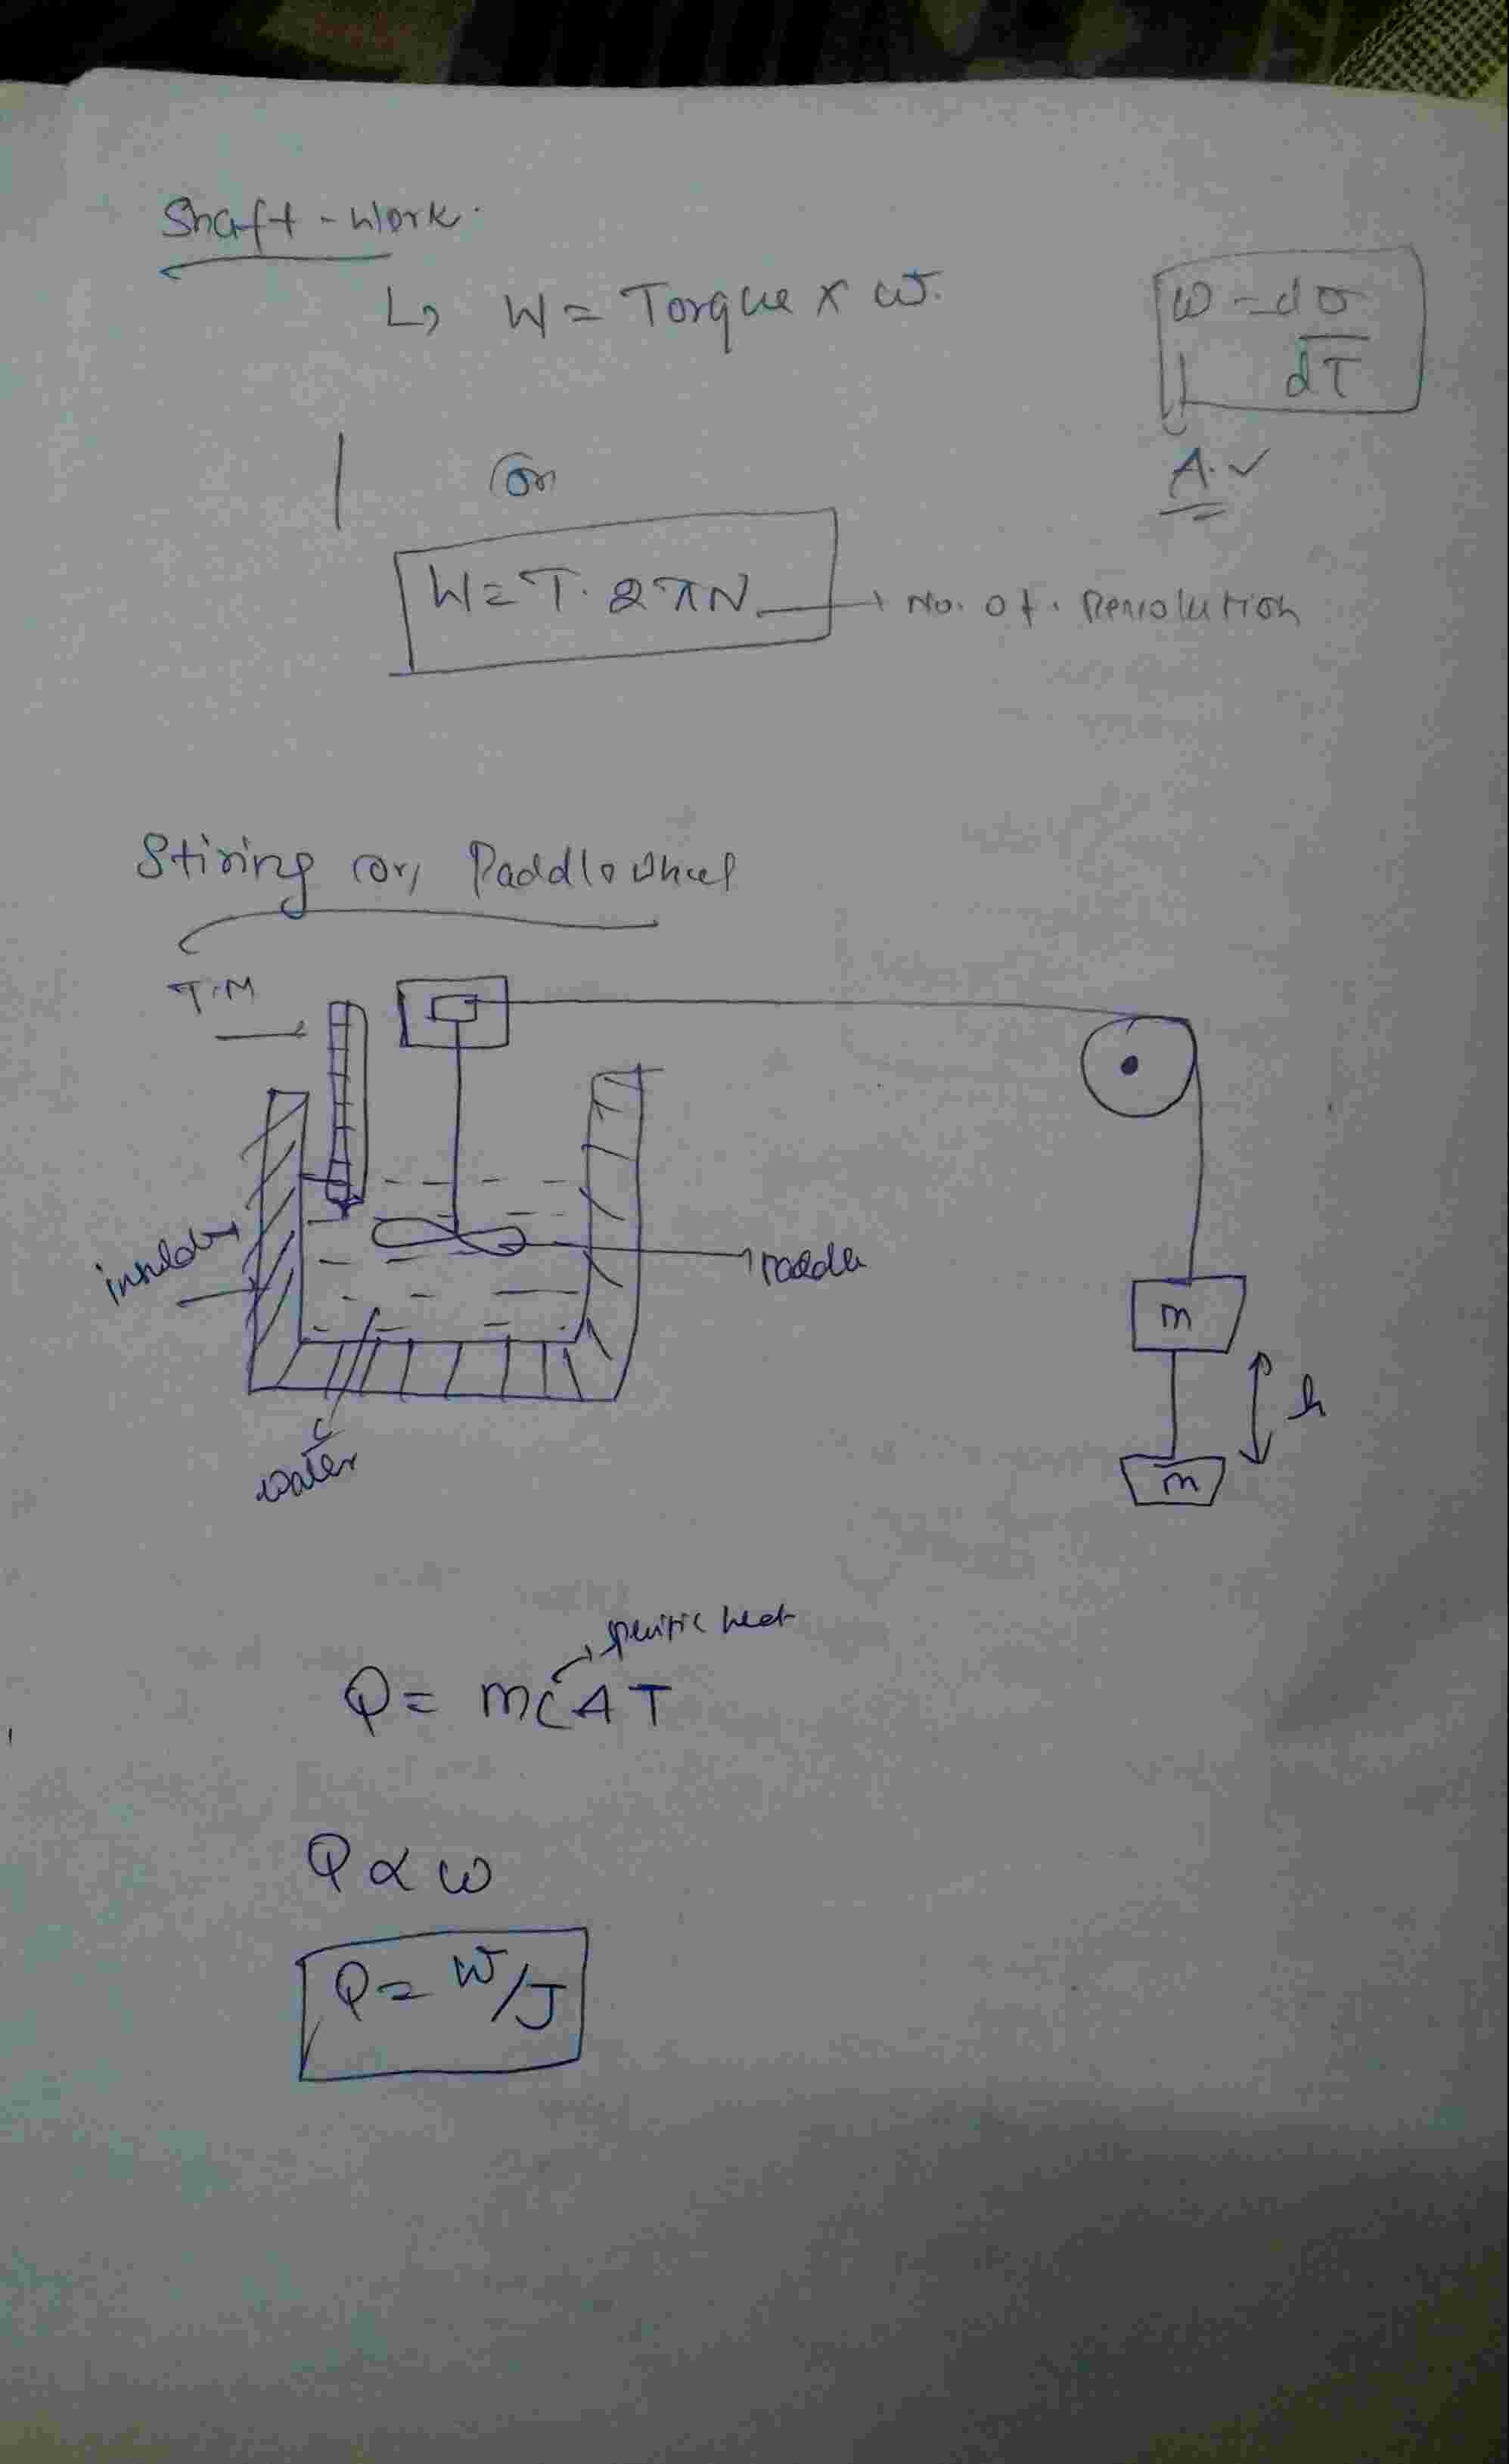 Shaft-work.
↳ W = Torque × ω.
ω = dσ
dT
A.V
(or)
W = T. 2πN → No. of. Revolution
Stiring (or) Paddle wheel
T.M
paddle
m
h
m
water
specific heat
Q = mcΔT
Q ∝ w
Q = W/J